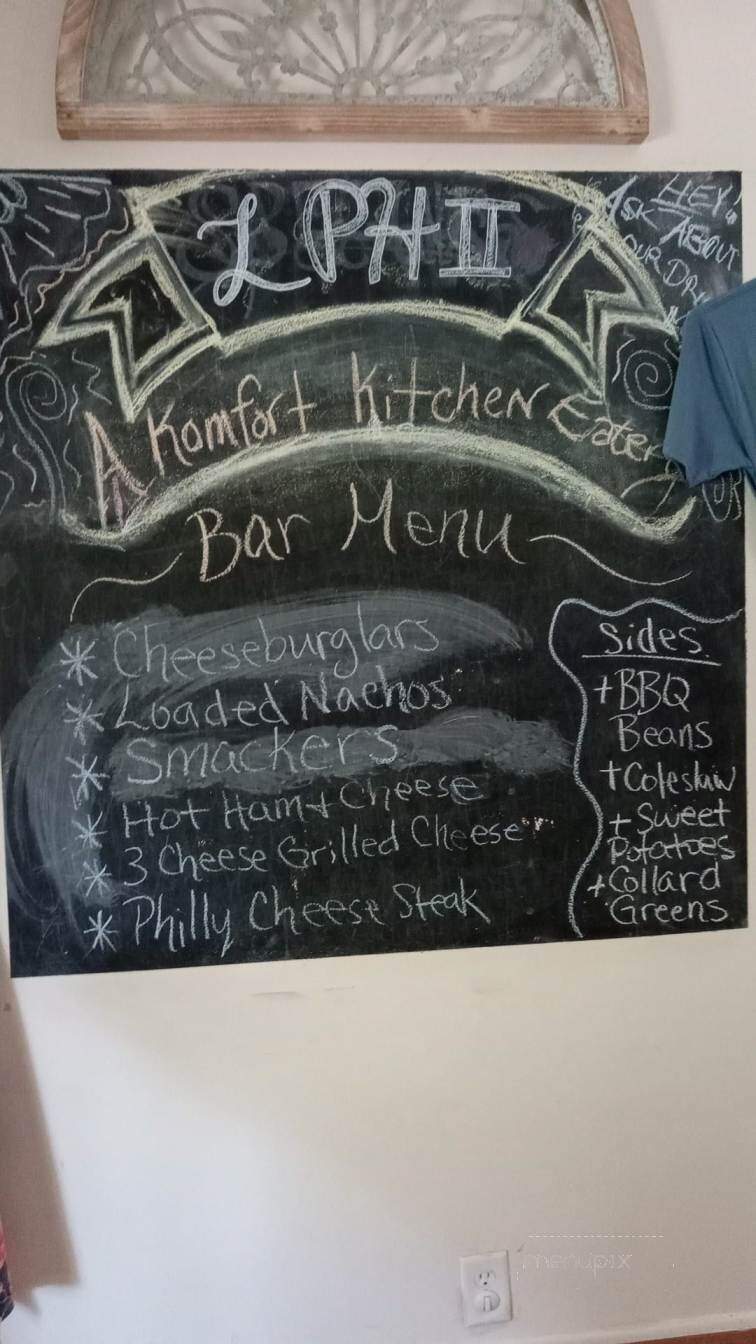 LPH II
HEY!
ASK ABOUT
OUR
A Komfort Kitchen Eatery
Bar Menu
* Cheeseburglars
* Loaded Nachos
* Smackers
* Hot Ham + Cheese
* 3 Cheese Grilled Cheese
* Philly Cheese Steak
Sides
+ BBQ
Beans
+ Coleslaw
+ Sweet
Potatoes
+ Collard
Greens
menupix